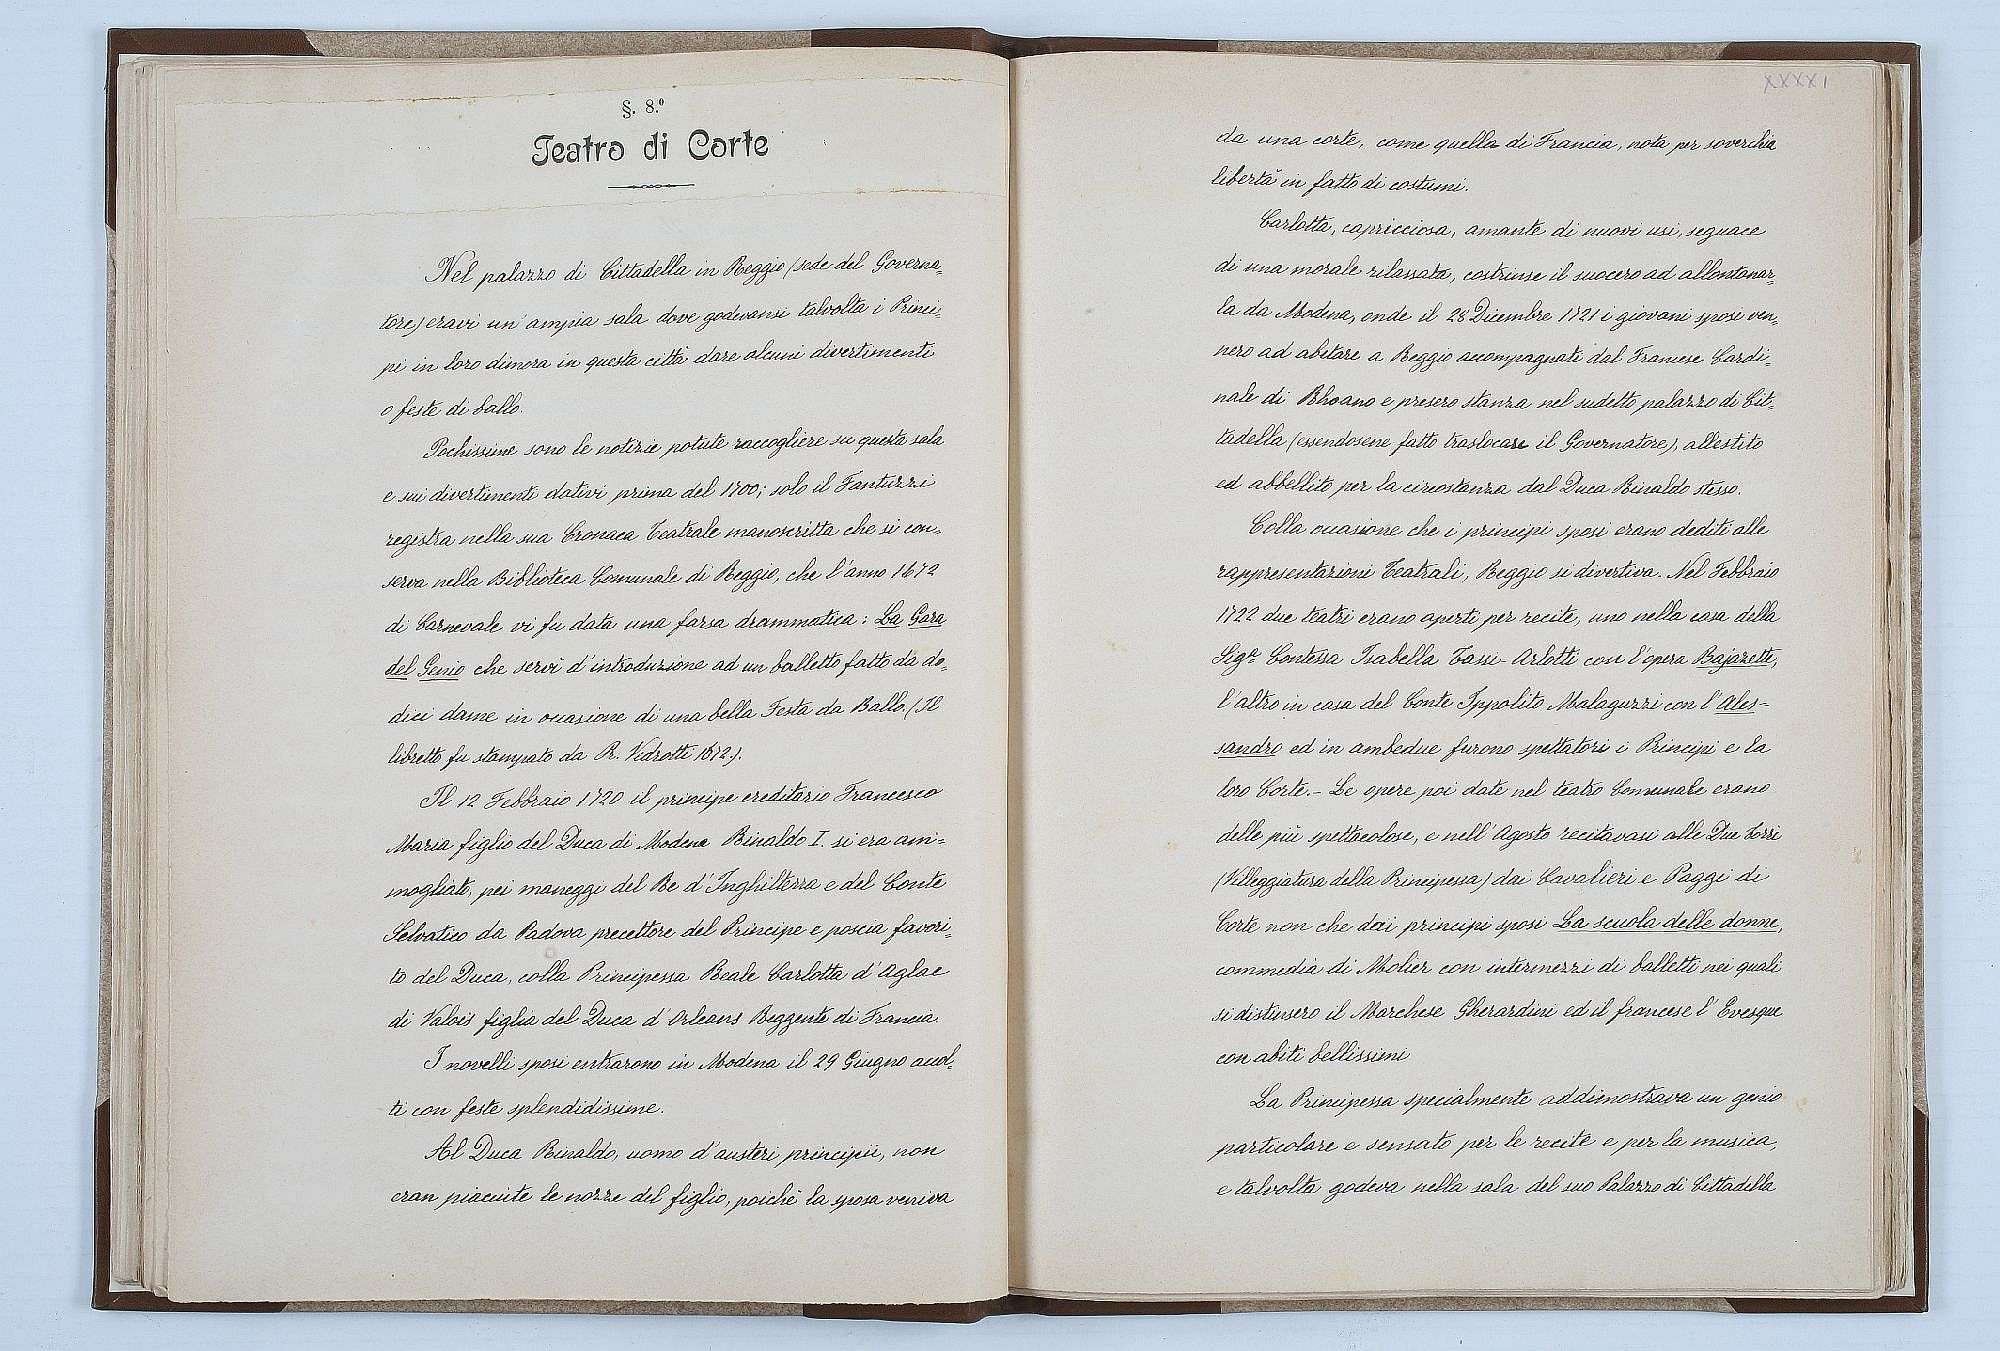 §. 8.º
Teatro di Corte
Nel palazzo di Cittadella in Reggio (sede del Governa-
tore) eravi un' ampia sala dove godevansi talvolta i Princi-
pi in loro dimora in questa città dare alcuni divertimenti
o feste di ballo.
Pochissime sono le notizie potute raccogliere su questa sala
e sui divertimenti dativi prima del 1700; solo il Fantuzzi
registra nella sua Cronaca Teatrale manoscritta che si con-
serva nella Biblioteca Comunale di Reggio, che l'anno 1672
di Carnevale vi fu data una farsa drammatica: La Gara
del Genio che servì d'introduzione ad un balletto fatto da do-
dici dame in occasione di una bella Festa da Ballo. (Il
libretto fu stampato da R. Vidrotti 1672).
Il 12 Febbraio 1720 il principe ereditario Francesco
Maria figlio del Duca di Modena Rinaldo I. si era am-
mogliato, pei maneggi del Re d'Inghilterra e del Conte
Selvatico da Padova precettore del Principe e poscia favori-
to del Duca, colla Principessa Reale Carlotta d'Aglae
di Valois figlia del Duca d'Orleans Reggente di Francia.
I novelli sposi entrarono in Modena il 29 Giugno accol-
ti con feste splendidissime.
Al Duca Rinaldo, uomo d'austeri principii, non
eran piaciute le nozze del figlio, poichè la sposa veniva
XXXXI
da una corte, come quella di Francia, nota per soverchia
libertà in fatto di costumi.
Carlotta, capricciosa, amante di nuovi usi, seguace
di una morale rilassata, costrinse il suocero ad allontanar-
la da Modena, onde il 28 Dicembre 1721 i giovani sposi ven-
nero ad abitare a Reggio accompagnati dal Francese Cardi-
nale di Rhoano e presero stanza nel sudetto palazzo di Cit-
tadella (essendosene fatto traslocare il Governatore), allestito
ed abbellito per la circostanza dal Duca Rinaldo stesso.
Colla occasione che i principi sposi erano dediti alle
rappresentazioni Teatrali, Reggio si divertiva. Nel Febbraio
1722 due teatri erano aperti per recite, uno nella casa della
Sigra Contessa Isabella Tassi-Arlotti con l'opera Bajazette,
l'altro in casa del Conte Ippolito Malaguzzi con l'Ales-
sandro ed in ambedue furono spettatori i Principi e la
loro Corte.- Le opere poi date nel teatro Comunale erano
delle più spettacolose, e nell'Agosto recitavasi alle Due Torri
(Villeggiatura della Principessa) dai Cavalieri e Paggi di
Corte non che dai principi sposi La scuola delle donne,
commedia di Molier con intermezzi di balletti nei quali
si distinsero il Marchese Gherardini ed il francese l'Evesque
con abiti bellissimi
La Principessa specialmente addimostrava un genio
particolare e sensato per le recite e per la musica,
e talvolta godeva nella sala del suo Palazzo di Cittadella